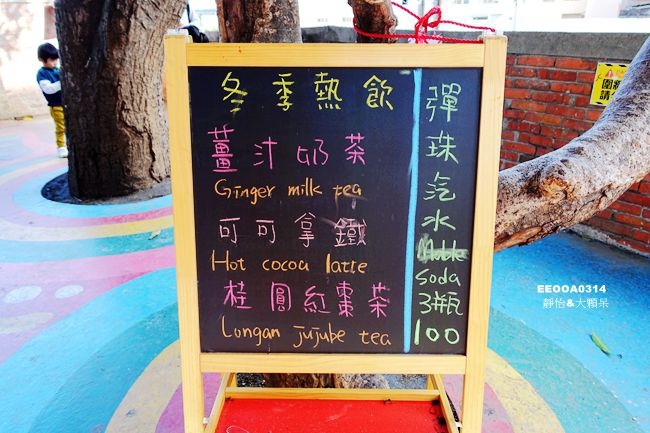 冬季熱飲
薑汁奶茶
Ginger milk tea
可可拿鐵
Hot cocoa latte
桂圓紅棗茶
Longan jujube tea
彈珠汽水
soda
3瓶
100
EEOOA0314
靜怡&大顆呆